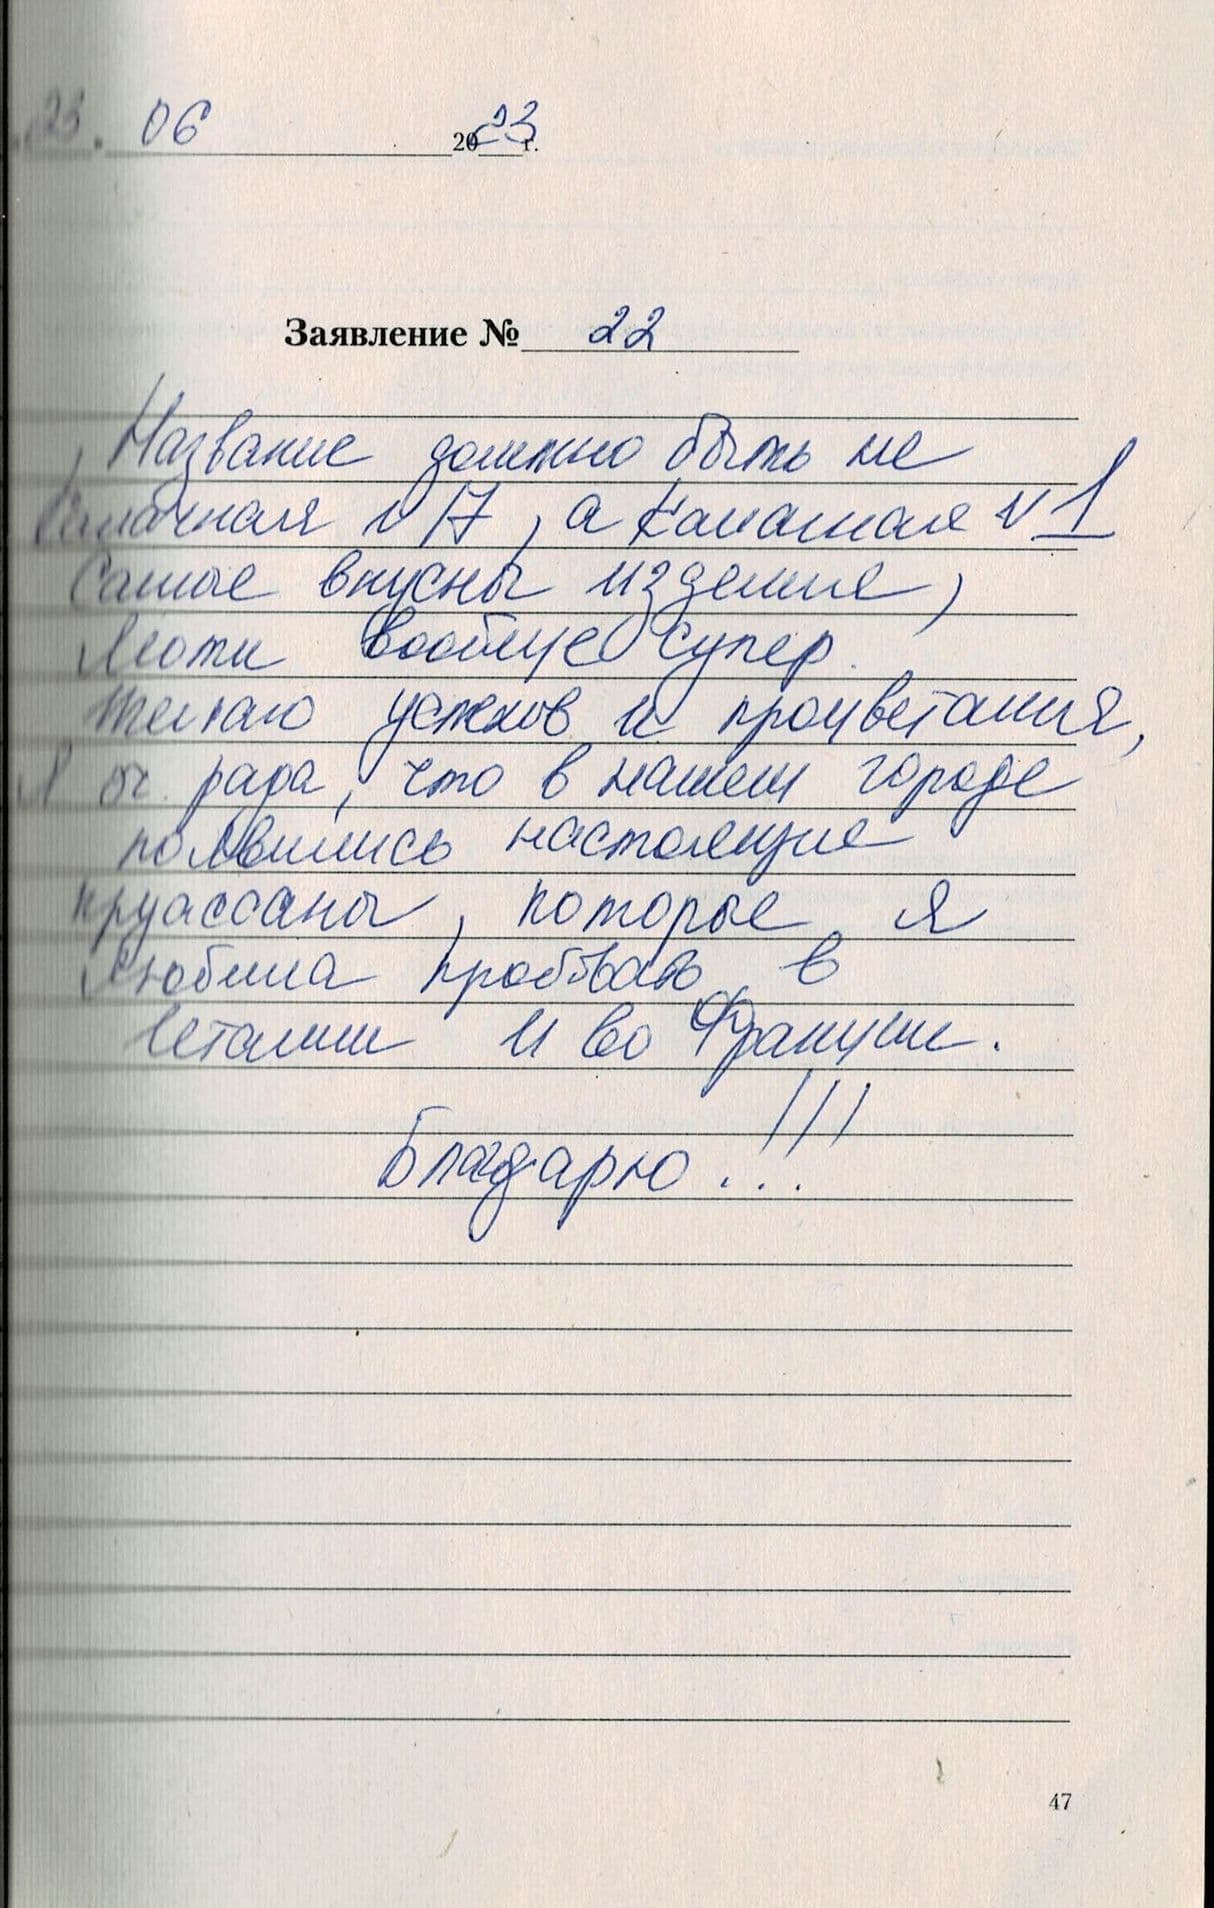 23. 06 2023 г.
Заявление № 22
Название должно быть не
Калачная №17, а Калачная №1
Самые вкусны изделия,
Моти вообще супер.
Желаю успехов и процветания,
Я оч. рада, что в нашем городе
появились настоящие
круассаны, которые я
любила пробовать в
Италии и во Франции.
Благодарю...!!!
47